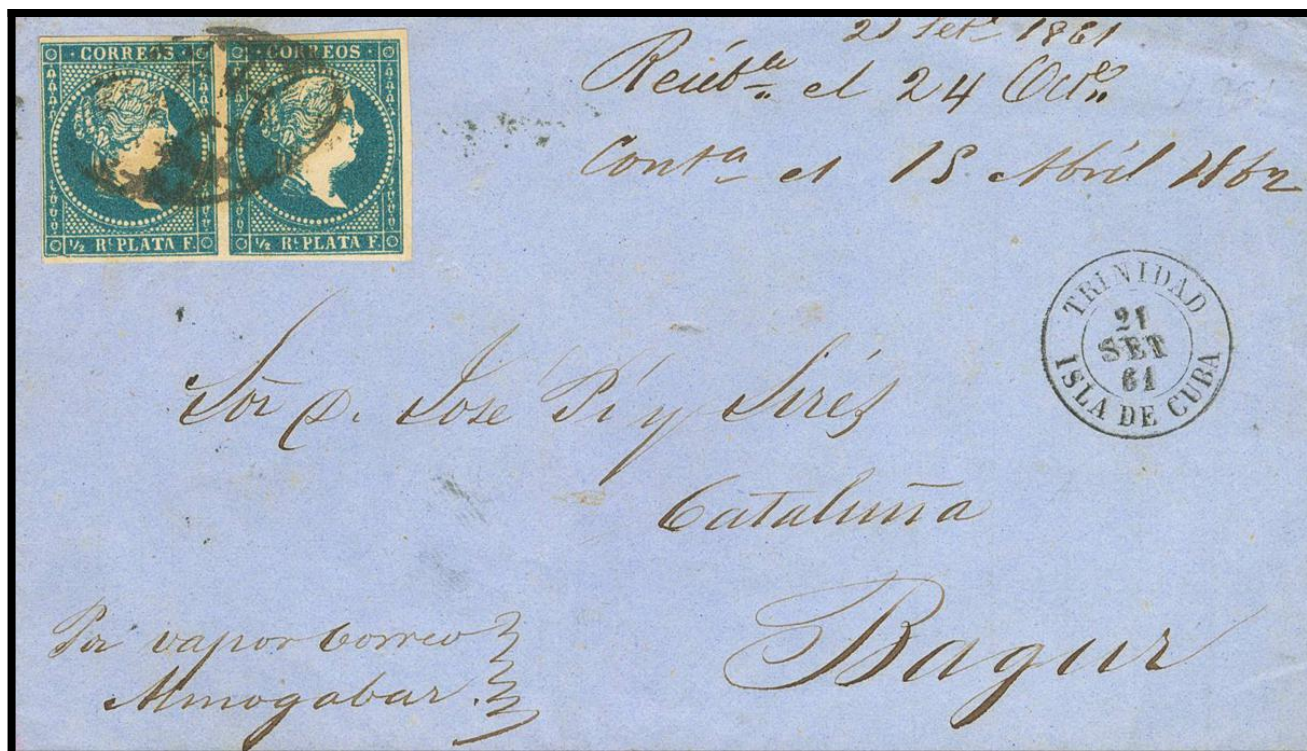 CORREOS CORREOS
½ Rl PLATA F. ½ Rl PLATA F.
21 Set 1861
Recibda el 24 Octe
Conta el 15 Abril 1862
TRINIDAD
21
SET
61
ISLA DE CUBA
Sor D. José Pí y Sirés
Cataluña
Bagur
Por vapor Correo
Almogabar.